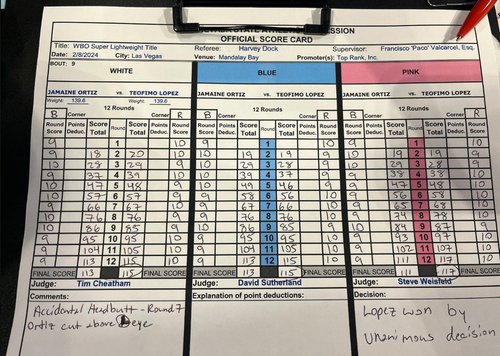 STATE ATHLETIC COMMISSION
OFFICIAL SCORE CARD
Title: WBO Super Lightweight Title Referee: Harvey Dock Supervisor: Francisco 'Paco' Valcarcel, Esq.
Date: 2/8/2024 City: Las Vegas Venue: Mandalay Bay Promoter(s): Top Rank, Inc.
BOUT: 9
WHITE BLUE PINK
JAMAINE ORTIZ vs. TEOFIMO LOPEZ JAMAINE ORTIZ vs. TEOFIMO LOPEZ JAMAINE ORTIZ vs. TEOFIMO LOPEZ
Weight: 139.6 Weight: 139.6
12 Rounds 12 Rounds 12 Rounds
B Corner Corner R B Corner Corner R B Corner Corner R
Round Score Points Deduc. Score Total Round Score Total Points Deduc. Round Score Round Score Points Deduc. Score Total Round Score Total Points Deduc. Round Score Round Score Points Deduc. Score Total Round Score Total Points Deduc. Round Score
9 1 10 9 1 10 9 1 10
9 18 2 20 10 10 19 2 19 9 10 19 2 19 9
10 28 3 29 9 10 29 3 28 9 10 29 3 28 9
9 37 4 39 10 10 39 4 37 9 9 38 4 38 10
10 47 5 48 9 10 49 5 46 9 9 47 5 48 10
10 57 6 57 9 9 58 6 56 10 9 56 6 58 10
9 66 7 67 10 9 67 7 66 10 9 65 7 68 10
10 76 8 76 9 9 76 8 76 10 9 74 8 78 10
10 86 9 85 9 10 86 9 85 9 10 84 9 87 9
9 95 10 95 10 9 95 10 95 10 9 93 10 97 10
9 104 11 105 10 9 104 11 105 10 9 102 11 107 10
9 113 12 115 10 9 113 12 115 10 9 111 12 117 10
FINAL SCORE 113 115 FINAL SCORE FINAL SCORE 113 115 FINAL SCORE FINAL SCORE 111 117 FINAL SCORE
Judge: Tim Cheatham Judge: David Sutherland Judge: Steve Weisfeld
Comments: Explanation of point deductions: Decision:
Accidental Headbutt - Round 7
Ortiz cut above L eye
Lopez won by
Unanimous decision